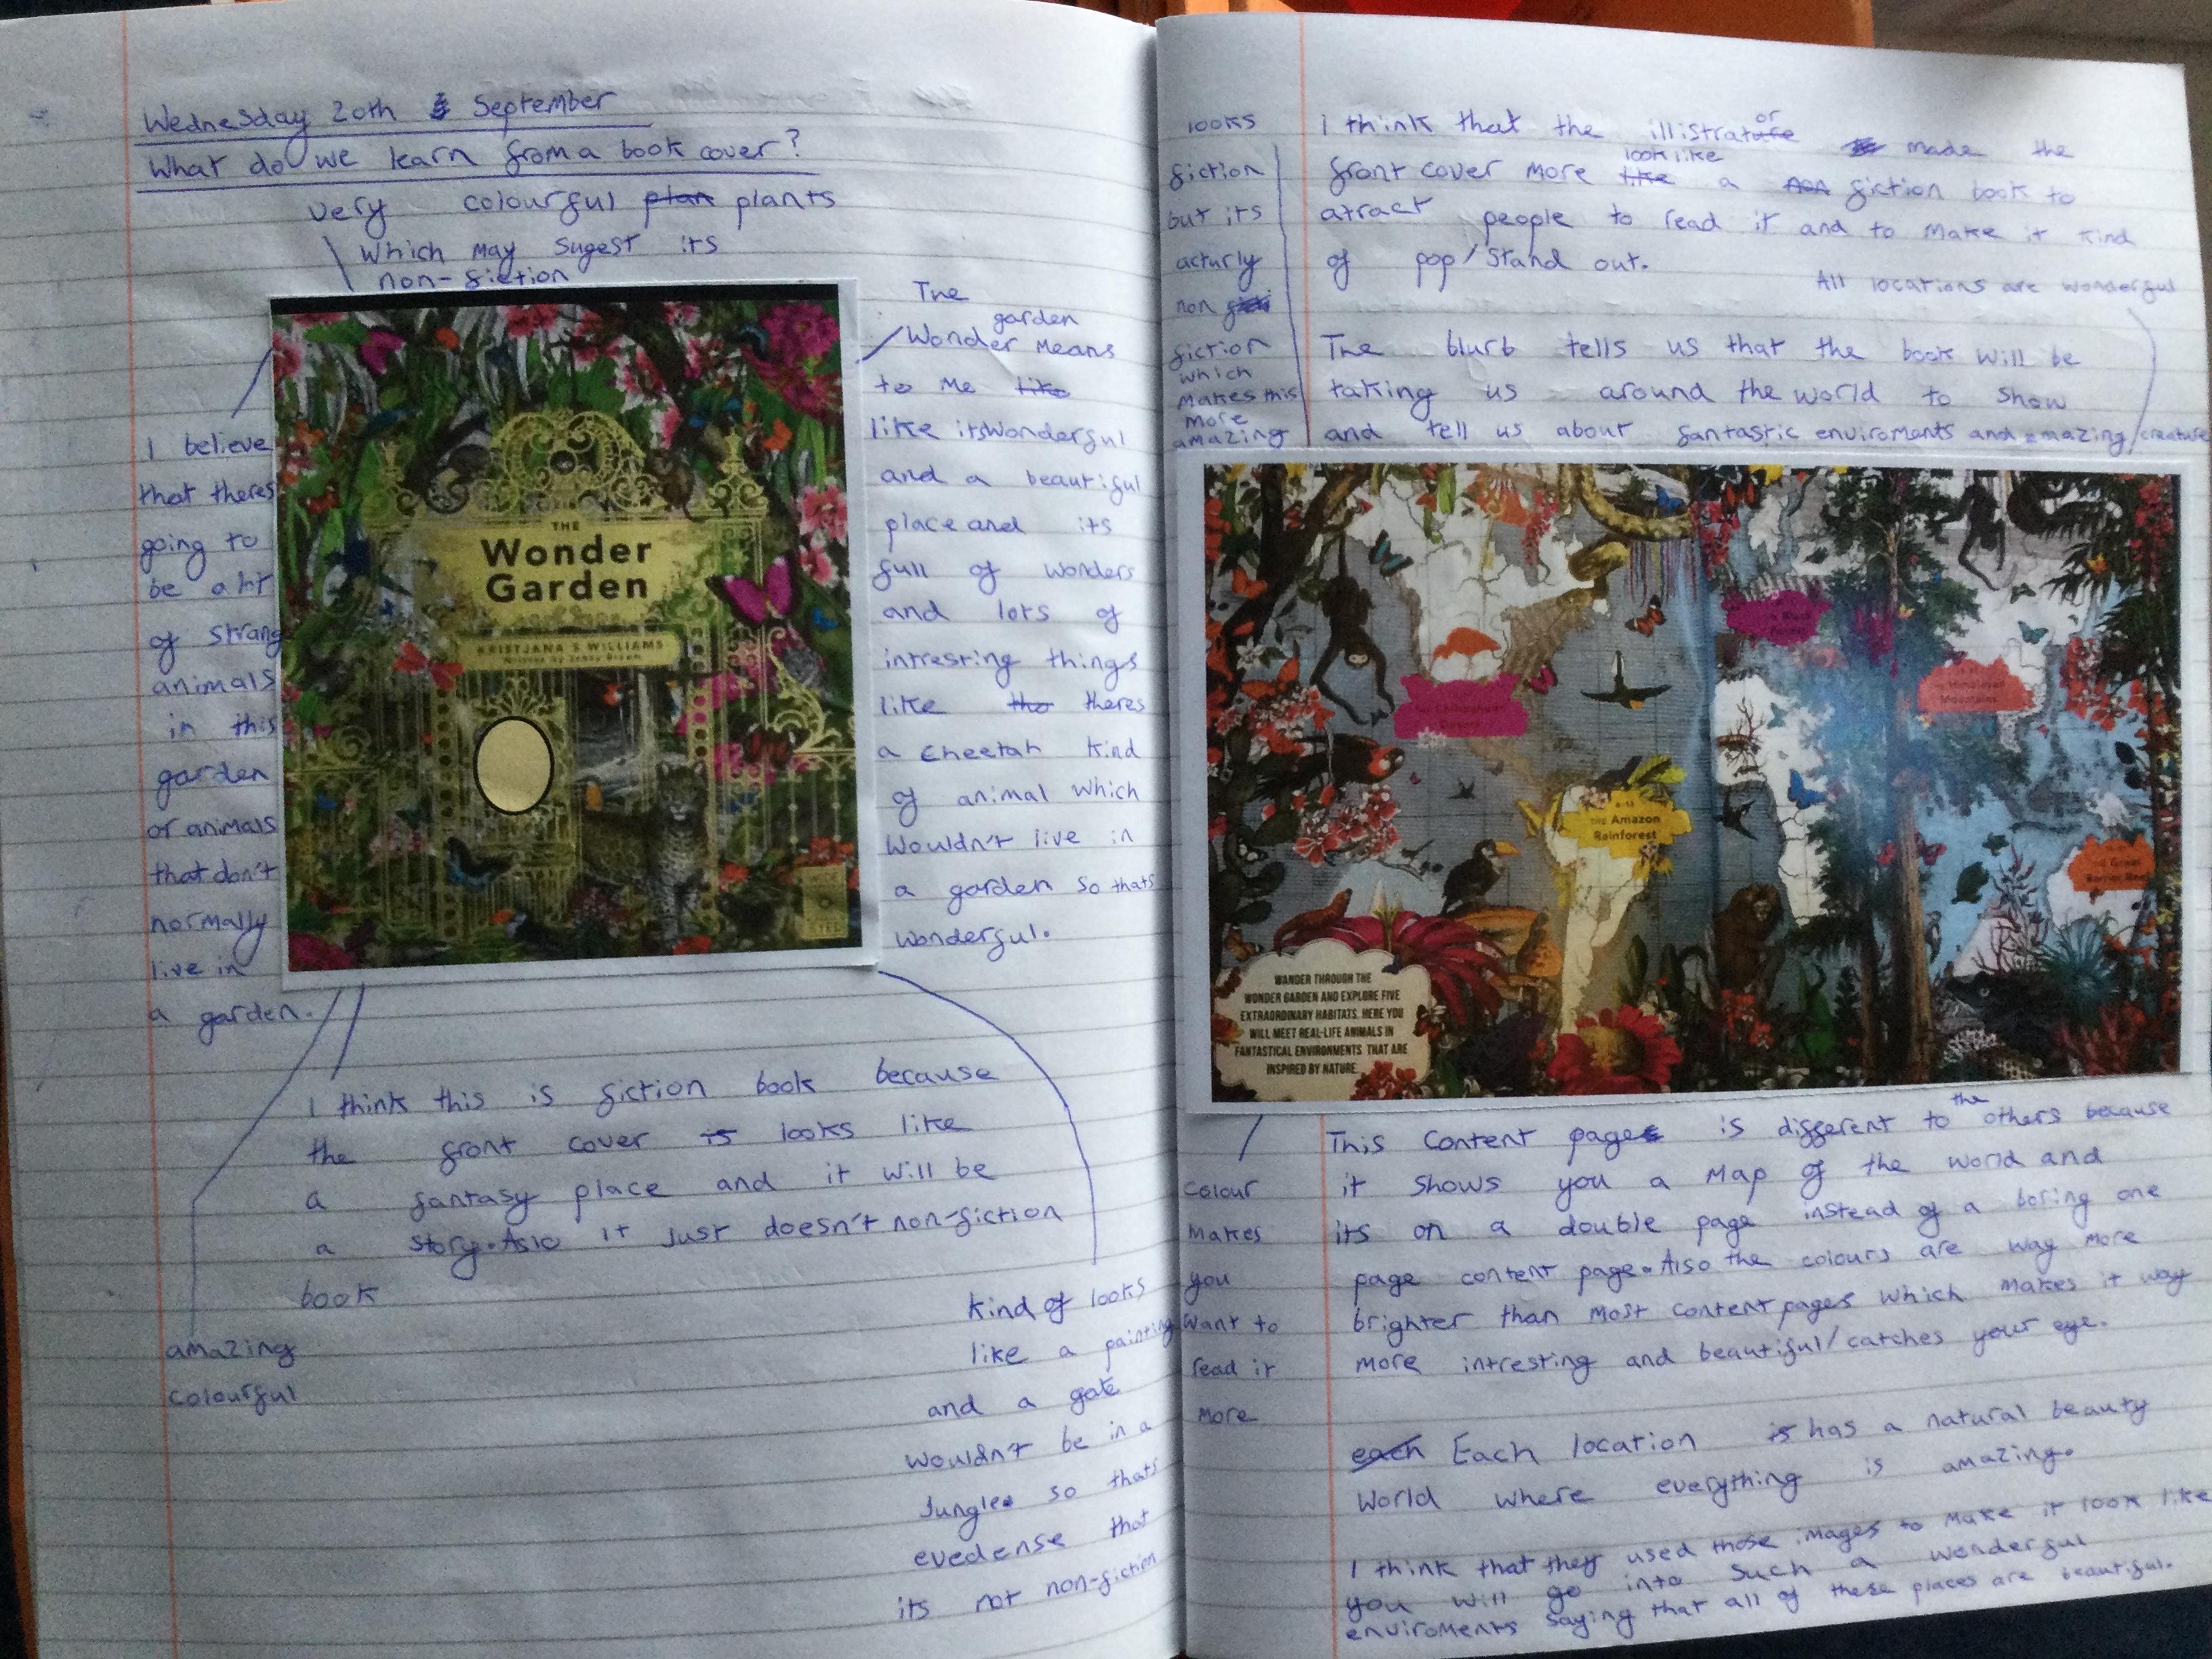 Wednesday 20th September
What do we learn from a book cover?
very colourful plan plants
which may sugest its
non-fiction
I believe
that theres
going to
be a lot
of strang
animals
in this
garden
or animals
that don't
normally
live in
a garden.
THE
Wonder
Garden
KRISTJANA S WILLIAMS
Written by Jenny Broom
WIDE
EYED
The
garden
Wonder Means
to Me like
like itswonderful
and a beautiful
place and its
full of wonders
and lots of
intresting things
like tho theres
a cheetah kind
of animal which
wouldn't live in
a garden so thats
wonderful.
I think this is fiction book because
the front cover is looks like
a fantasy place and it will be
a story. Aslo it just doesn't non-fiction
book
amazing
colourful
kind of looks
like a painting
and a gate
wouldn't be in a
Jungle so thats
evedense that
its not non-fiction
looks
fiction
but its
acturly
non
fiction
which
makes this
more
amazing
I think that the illistrature or made the
front cover more like look like a non fiction book to
atract people to read it and to make it kind
of pop/stand out.
All locations are wonderful
The blurb tells us that the book will be
taking us around the world to show
and tell us about fantastic enviroments and amazing creature
THE Amazon
Rainforest
Himalayan
Mountains
Black
Forest
Desert
Great
Barrier Reef
WANDER THROUGH THE
WONDER GARDEN AND EXPLORE FIVE
EXTRAORDINARY HABITATS. HERE YOU
WILL MEET REAL-LIFE ANIMALS IN
FANTASTICAL ENVIRONMENTS THAT ARE
INSPIRED BY NATURE
Colour
makes
you
want to
read it
more
This content page is different to the others because
it shows you a map of the world and
its on a double page instead of a boring one
page content page. Also the colours are way more
brighter than most content pages which makes it way
more intresting and beautiful/catches your eye.
each Each location is has a natural beauty
world where everything is amazing.
I think that they used those images to make it look like
you will go into such a wonderful
enviroments saying that all of these places are beautiful.